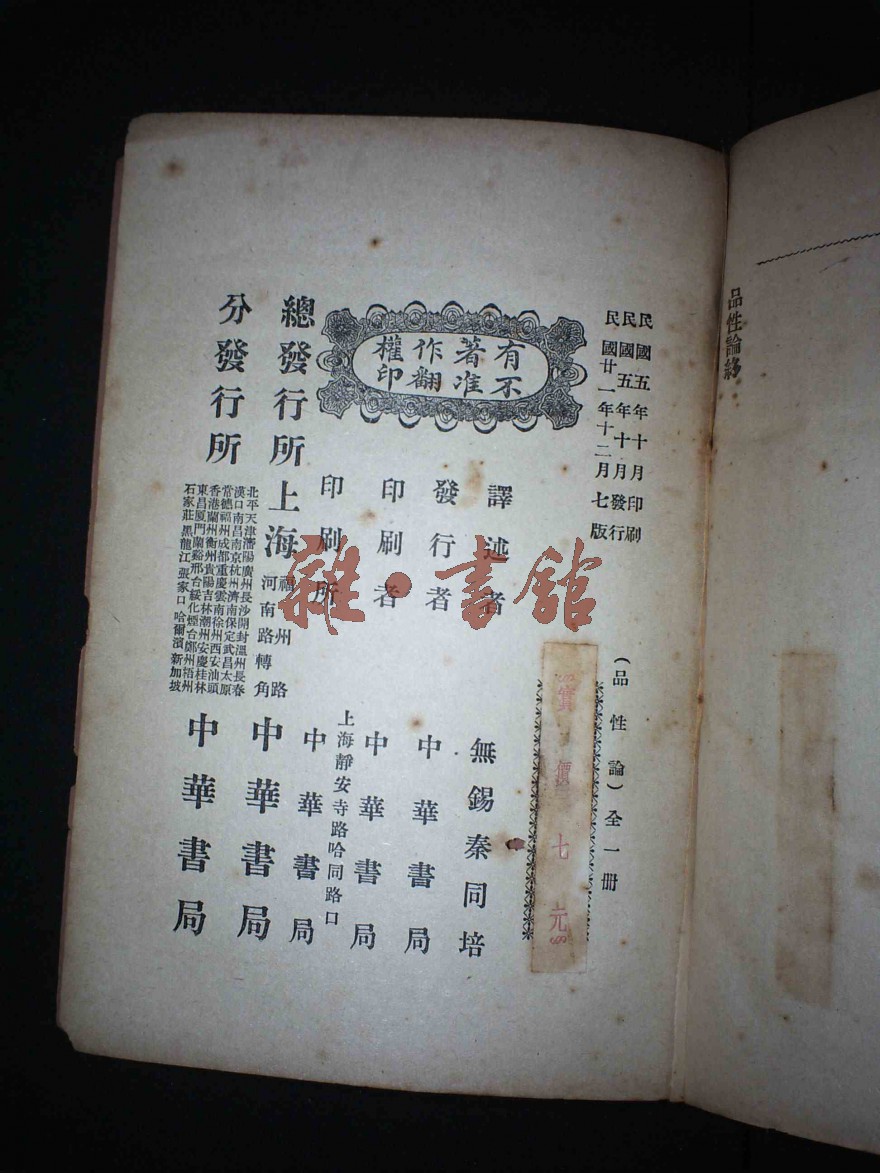 品性論終
民國五年十月印刷
民國五年十月發行
民國廿一年十二月七版
(品性論)全一冊
實價七元
有著作權
不准翻印
譯述者 無錫秦同培
發行者 中華書局
印刷者 中華書局
上海靜安寺路哈同路口
印刷所 中華書局
總發行所 上海 福州路
河南路轉角 中華書局
分發行所
北平天津瀋陽廣州長沙開封溫州長春
漢口南昌南京杭州濟南保定武昌太原
常德福州成都重慶雲南徐州西安汕頭
香港蘭州衡州貴陽吉林潮州安慶桂林
東昌厦門蘭谿邢台綏化煙台鄭州梧州
石家莊黑龍江張家口哈爾濱新加坡
中華書局
雜·書館